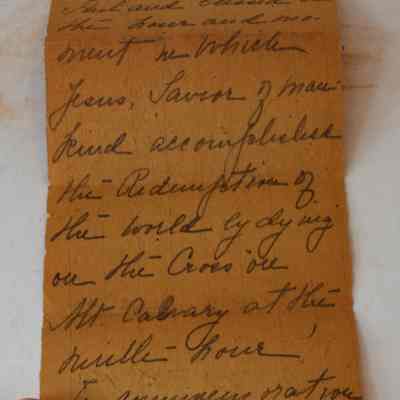 Hail and blessed be
the hour and mo-
ment in Which
Jesus, Savior of man-
kind accomplished
the Redemption of
the World by dying
on the Cross on
Mt Calvary at the
ninth hour,
In commemoration